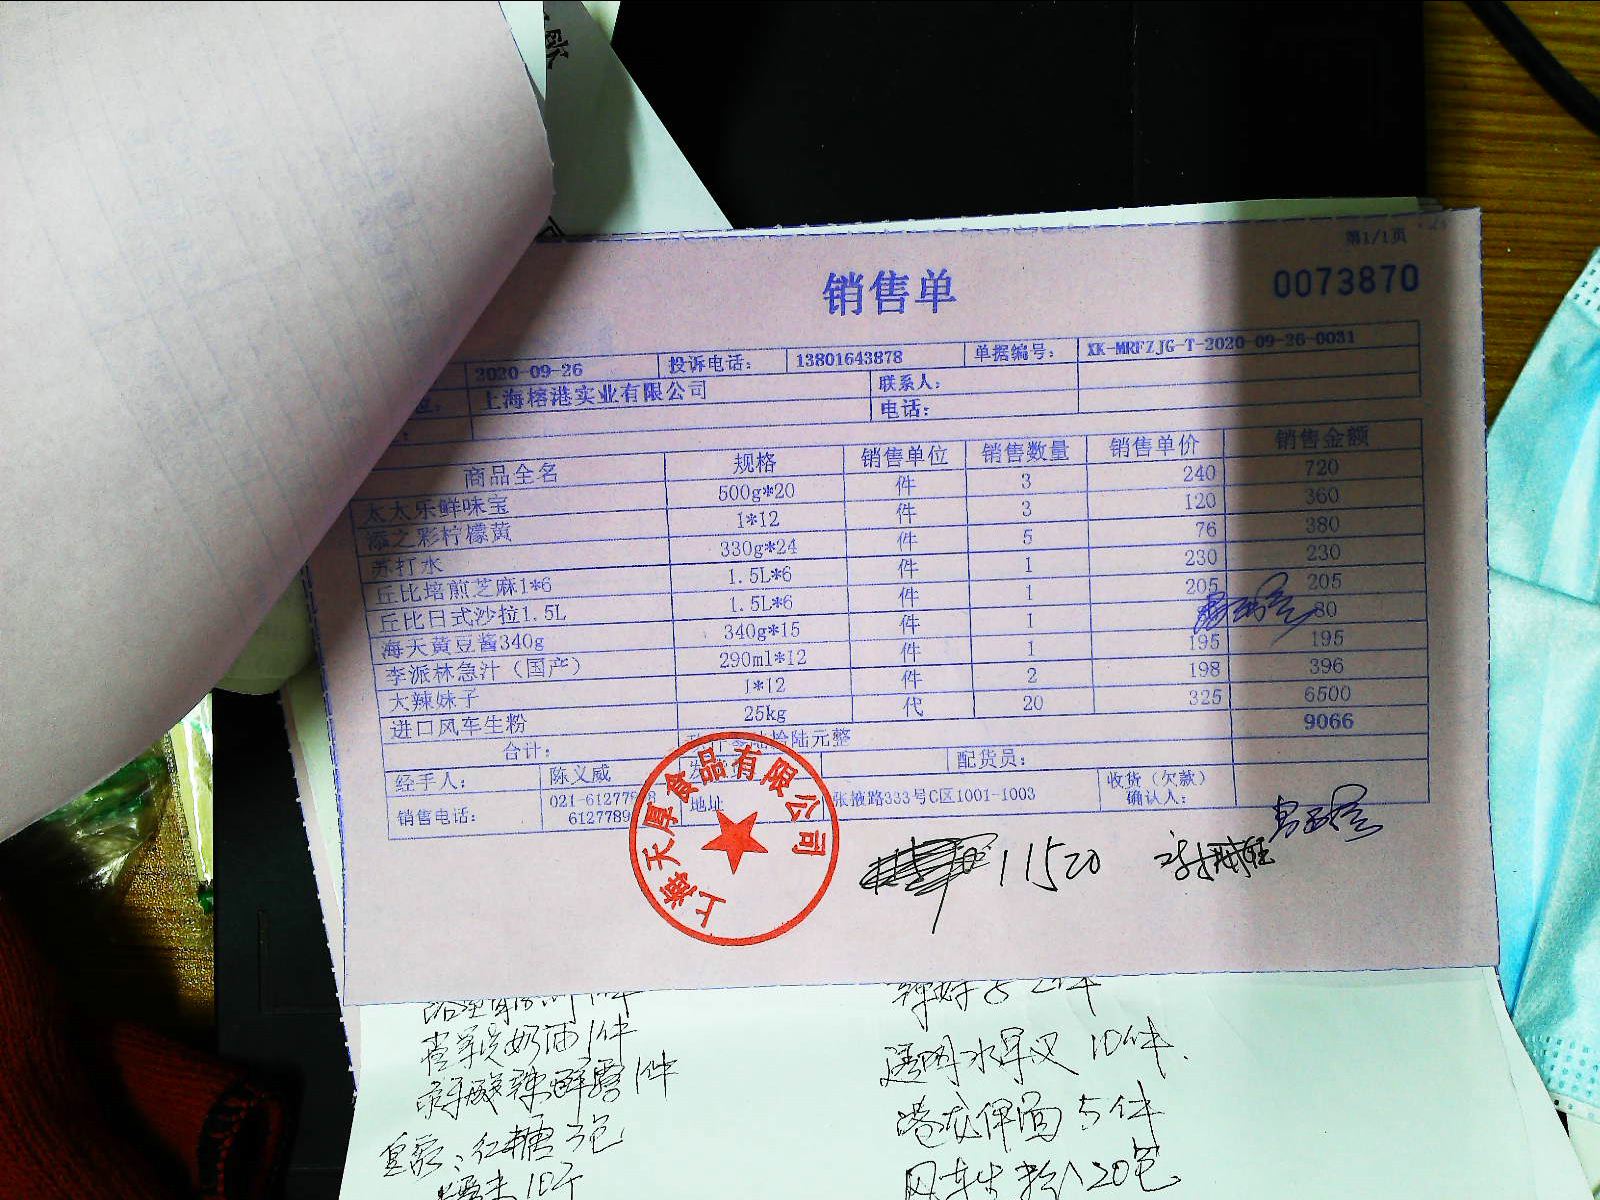 第1/1页
销售单
0073870
2020-09-26 投诉电话: 13801643878 单据编号: XK-MRFZJG-T-2020-09-26-0031
上海榕港实业有限公司 联系人:
电话:
商品全名 规格 销售单位 销售数量 销售单价 销售金额
太太乐鲜味宝 500g*20 件 3 240 720
添之彩柠檬黄 1*12 件 3 120 360
苏打水 330g*24 件 5 76 380
丘比培煎芝麻1*6 1.5L*6 件 1 230 230
丘比日式沙拉1.5L 1.5L*6 件 1 205 205
海天黄豆酱340g 340g*15 件 1 80
李派林急汁（国产） 290ml*12 件 1 195 195
大辣妹子 1*12 件 2 198 396
进口风车生粉 25kg 代 20 325 6500
合计: 拾陆元整 9066
经手人: 陈义威 配货员:
销售电话: 021-61277 地址 张掖路333号C区1001-1003 收货（欠款）
6127789 确认人:
上海天厚食品有限公司
11520
奶油1件
1件
红糖3包
10个
透明水早 10件.
港龙伊面5件
风车生粉20包